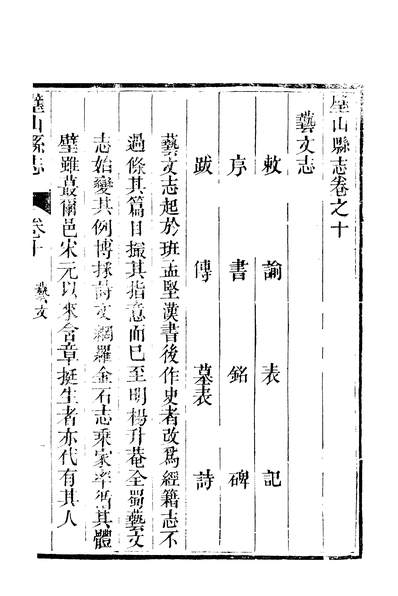 璧山縣志卷之十
藝文志
敕 諭 表 記
序 書 銘 碑
跋 傳 墓表 詩
藝文志起於班孟堅漢書後作史者改爲經籍志不
過條其篇目撮其指意而已至明楊升菴全蜀藝文
志始變其例博採詩文網羅金石志乘家率循其體
璧雖蕞爾邑宋元以來含章挺生者亦代有其人
璧山縣志 卷十 藝文